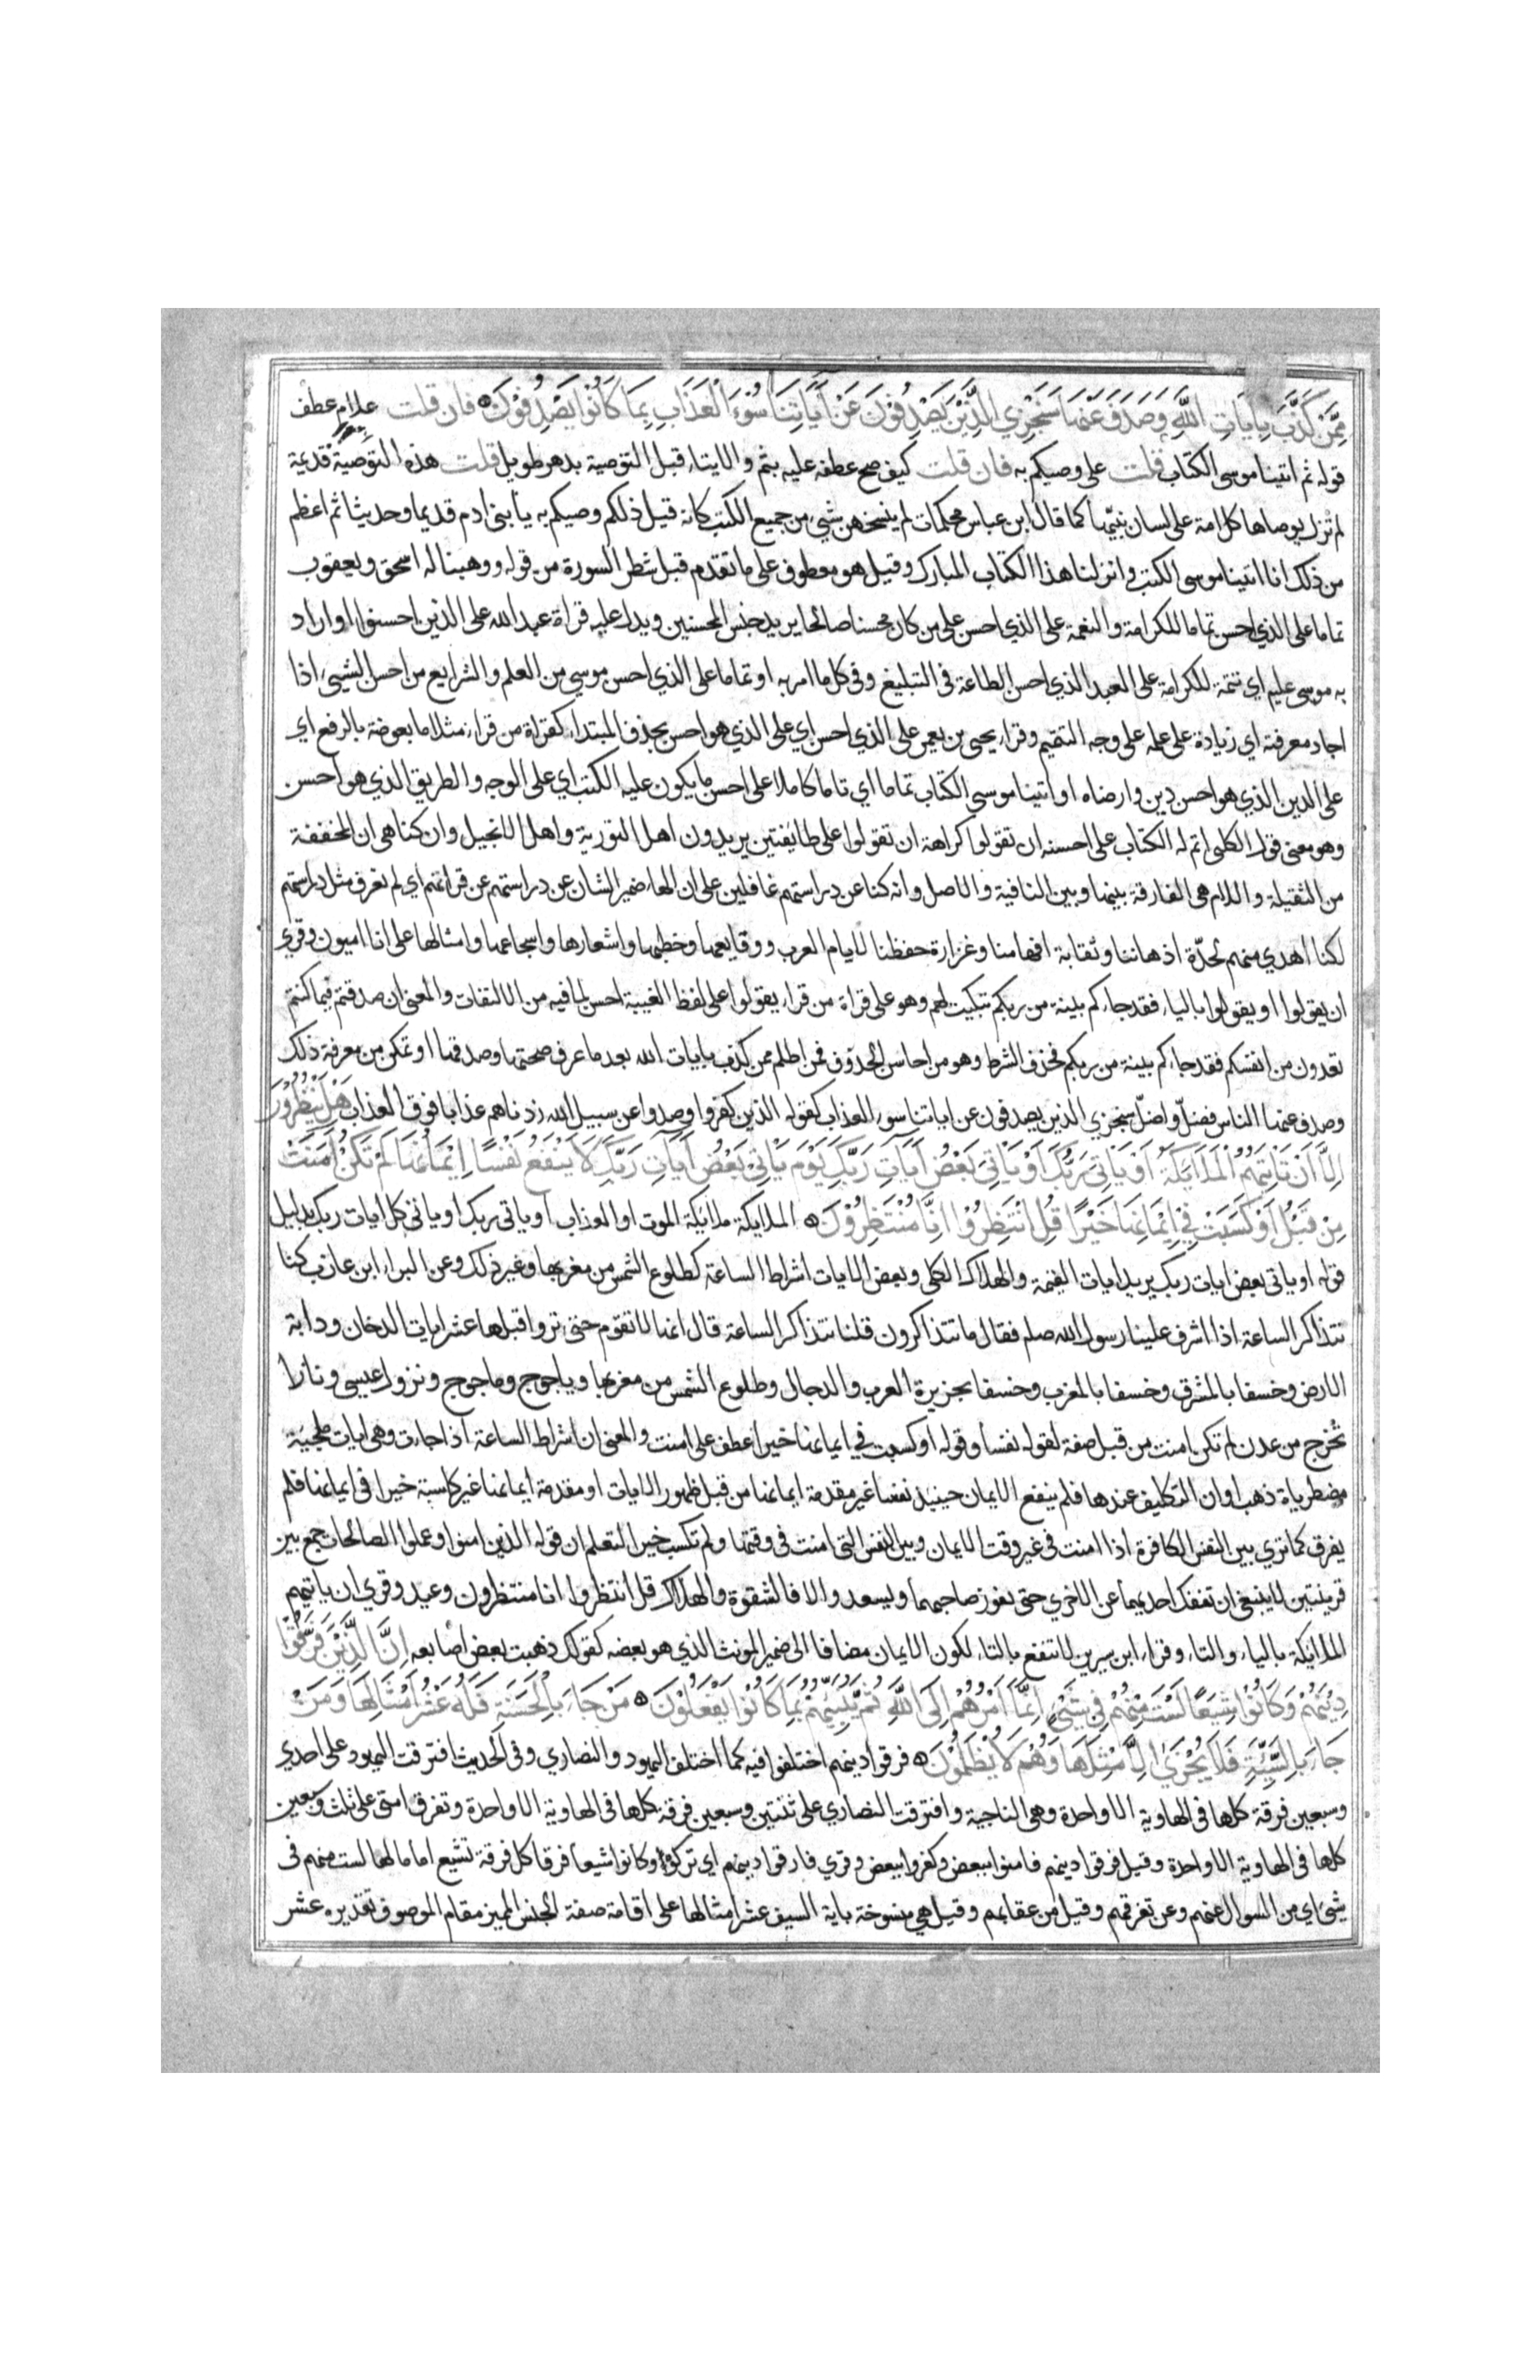 مِمَّن كَذَّبَ بِاٰيَاتِ اللَّهِ وَصَدَفَ عَنْهَا سَنَجْزِي الَّذِيْنَ يَصْدِفُوْنَ عَنْ اٰيَاتِنَا سُوْءَ الْعَذَابِ بِمَا كَانُوا يَصْدِفُوْنَ فان قلت علام عطف
قوله ثم اتينا موسى الكتاب قلت على وصيكم به فان قلت كيف صح عطفه عليه بثم والايتاء قبل التوصية بدهر طويل قلت هذه التوصية قديمة
لم تزل يوصاها كل امة على لسان نبيها كما قال ابن عباس محكمات لم ينسخهن شيء من جميع الكتب كانه قيل ذلكم وصيكم به يا بنى ادم قديما وحديثا ثم اعظم
من ذلك انا اتينا موسى الكتب وانزلنا هذا الكتاب المبارك وقيل هو معطوف على ما تقدم قبل شطر السورة من قوله ووهبنا له اسحق ويعقوب
تماما على الذي احسن تماما للكرامة والنعمة على الذي احسن على من كان محسنا صالحا يريد جنس المحسنين ويدل عليه قراة عبد الله على الذين احسنوا او اراد
به موسى عليه اي تتمة للكرامة على العبد الذي احسن الطاعة فى التبليغ وفى كل ما امر به او تماما على الذي احسن موسي من العلم والشرايع من احسن الشيء اذا
اجاد معرفته اي زيادة على علمه على وجه التتميم وقراء يحيى بن يعمر على الذي احسن اي على الذي هو احسن بحذف المبتداء كقراة من قراء مثلا ما بعوضة بالرفع اي
على الدين الذي هو احسن دين وارضاه او اتينا موسي الكتاب تماما اي تاما كاملا على احسن ما يكون عليه الكتب اي على الوجه والطريق الذي هو احسن
وهو معنى قول الكلبى اتم له الكتاب على احسنه ان تقولوا كراهة ان تقولوا على طايفتين يريدون اهل التورية واهل الانجيل وان كنا هى ان المخففة
من الثقيلة واللام هى الفارقة بينها وبين النافية والاصل وانه كنا عن دراستهم غافلين على ان الهاء ضمير الشان عن دراستهم عن قراتهم اي لم نعرف مثل دراستهم
لكنا اهدي منهم لحدّة اذهاننا وثقابة افهامنا وغزارة حفظنا لايام العرب ووقايعها وخطبها واشعارها واسجاعها وامثالها على انا اميون وقري
ان يقولوا او يقولوا بالياء فقد جاءكم بينة من ربكم تبكيت لهم وهو على قراة من قراء يقولوا على لفظ الغيبة احسن لما فيه من الالتفات والمعنى ان صدقتم فيما كنتم
تعدون من انفسكم فقد جاءكم بينة من ربكم فحذف الشرط وهو من احاسن الحذوف فمن اظلم ممن كذب بايات الله بعد ما عرف صحتها وصدقها او تمكن من معرفة ذلك
وصدف عنها الناس فضلّ واضلّ سنجزي الذين يصدفون عن اياتنا سوء العذاب كقوله الذين كفروا وصدوا عن سبيل الله زدناهم عذابا فوق العذاب هَلْ يَنْظُرُوْنَ
اِلَّا اَنْ تَاتِيَهُمُ الْمَلَايِكَةُ اَوْ يَاتِيَ رَبُّكَ اَوْ يَاتِيَ بَعْضُ اٰيَاتِ رَبِّكَ يَوْمَ يَاتِيْ بَعْضُ اٰيَاتِ رَبِّكَ لَا يَنْفَعُ نَفْسًا اِيْمَانُهَا لَمْ تَكُنْ اٰمَنَتْ
مِنْ قَبْلُ اَوْ كَسَبَتْ فِيْ اِيْمَانِهَا خَيْرًا قُلِ انْتَظِرُوْا اِنَّا مُنْتَظِرُوْنَ الملايكة ملائكة الموت او العذاب او ياتى ربك او ياتى كل ايات ربك بدليل
قوله او ياتى بعض ايات ربك يريد ايات القيمة والهلاك الكلى وبعض الايات اشراط الساعة كطلوع الشمس من مغربها وغير ذلك وعن البراء ابن عازب كنا
نتذاكر الساعة اذا اشرف علينا رسول الله صلم فقال ما تتذاكرون قلنا نتذاكر الساعة قال انها لا تقوم حتى تروا قبلها عشر ايات الدخان ودابة
الارض وخسفا بالمشرق وخسفا بالمغرب وخسفا بجزيرة العرب والدجال وطلوع الشمس من مغربها وياجوج وماجوج ونزول عيسى ونارا
تخرج من عدن لم تكن امنت من قبل صفة لقوله نفسا وقوله او كسبت في ايمانها خيرا عطف على امنت والمعنى ان اشراط الساعة اذا جاءت وهى ايات ملجئة
مضطرباة ذهب اوان التكليف عندها فلم ينفع الايمان حينيذ نفسا غير مقدمة ايمانها من قبل ظهور الايات او مقدمة ايمانها غير كاسبة خيرا فى ايمانها فلم
يفرق كما تري بين النفس الكافرة اذا امنت فى غير وقت الايمان وبين النفس التى امنت فى وقتها ولم تكسب خيرا لتعلم ان قوله الذين امنوا وعملوا الصالحات جمع بين
قرينتين لا ينبغى ان تنفك احديهما عن الاخري حتى يفوز صاحبهما ويسعد والا فالشقوة والهلاك قل انتظروا انا منتظرون وعيد وقري ان ياتيهم
الملائكة بالياء والتاء وقراء ابن سيرين لا تنفع بالتاء لكون الايمان مضافا الى ضمير المونث الذي هو بعضه كقولك ذهبت بعض اصابعه اِنَّ الَّذِيْنَ فَرَّقُوْا
دِيْنَهُمْ وَكَانُوْا شِيَعًا لَسْتَ مِنْهُمْ فِيْ شَيْءٍ اِنَّمَا اَمْرُهُمْ اِلَى اللَّهِ ثُمَّ يُنَبِّئُهُمْ بِمَا كَانُوْا يَفْعَلُوْنَ مَنْ جَاءَ بِالْحَسَنَةِ فَلَهُ عَشْرُ اَمْثَالِهَا وَمَنْ
جَاءَ بِالسَّيِّئَةِ فَلَا يُجْزَىٰ اِلَّا مِثْلَهَا وَهُمْ لَا يُظْلَمُوْنَ فرقوا دينهم اختلفوا فيه كما اختلف اليهود والنصاري وفى الحديث افترقت اليهود على احدي
وسبعين فرقة كلها فى الهاوية الا واحدة وهى الناجية وافترقت النصاري على ثنتين وسبعين فرقة كلها فى الهاوية الا واحدة وتفرق امتى على ثلث وسبعين
كلها فى الهاوية الا واحدة وقيل فرقوا دينهم فامنوا ببعض وكفروا ببعض وقري فارقوا دينهم اي تركوه وكانوا شيعا فرقا كل فرقة تشيع اماما لها لست منهم فى
شيء اي من السوال عنهم وعن تفرقهم وقيل من عقابهم وقيل هي منسوخة باية السيف عشر امثالها على اقامة صفة الجنس المميز مقام الموصوف تقديره عشر